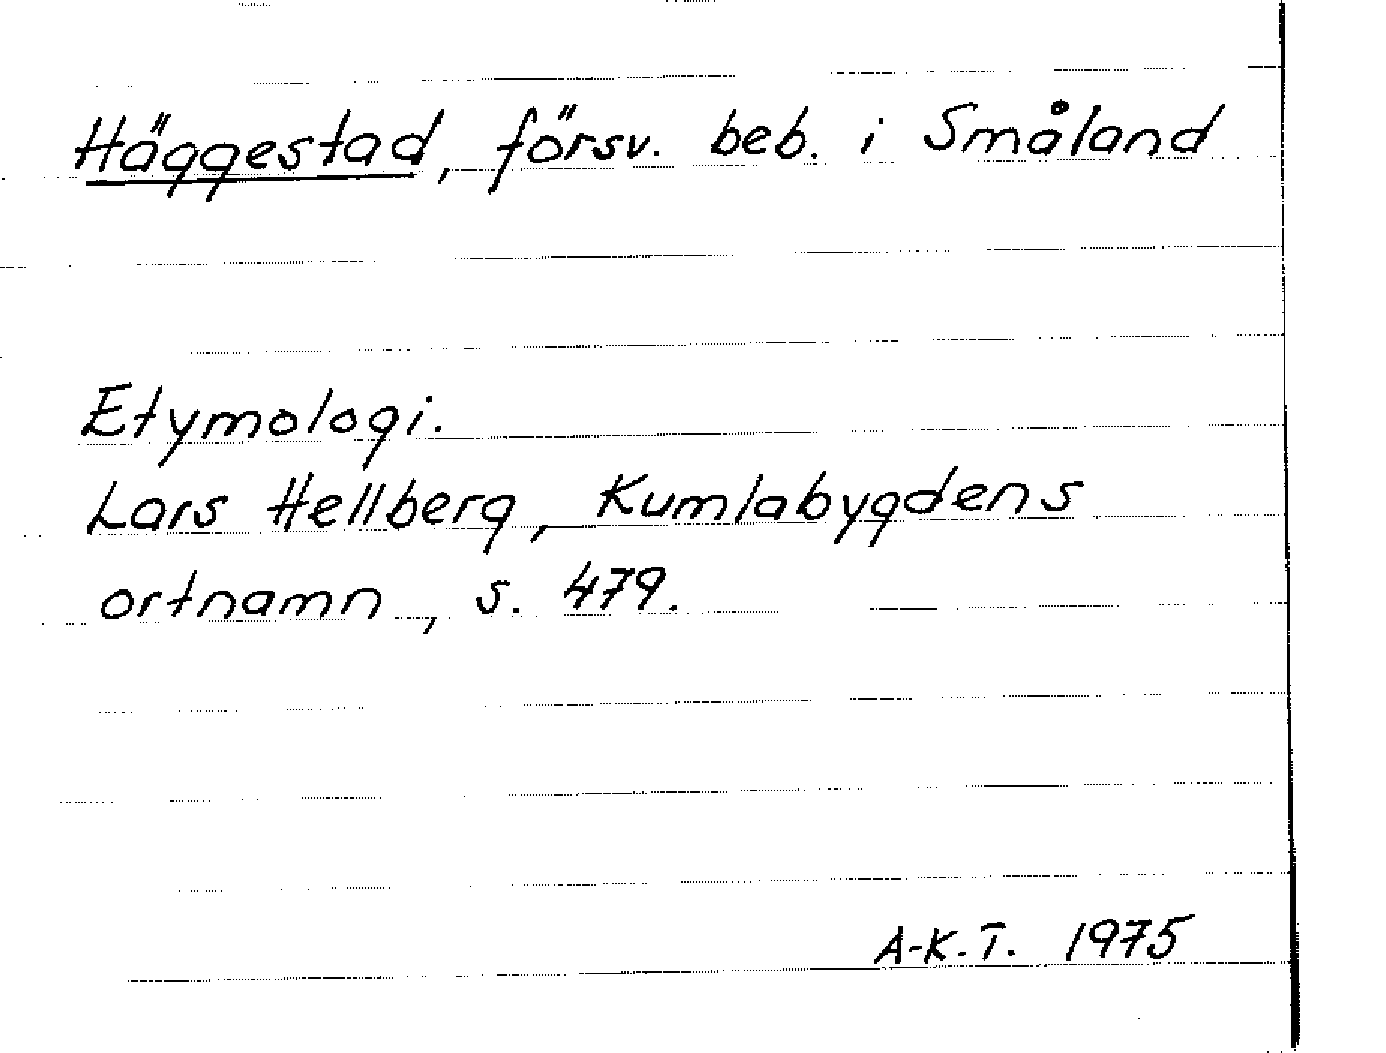 Häggestad, försv. beb. i Småland
Etymologi.
Lars Hellberg, Kumlabygdens
ortnamn, s. 479.
A-K.T. 1975